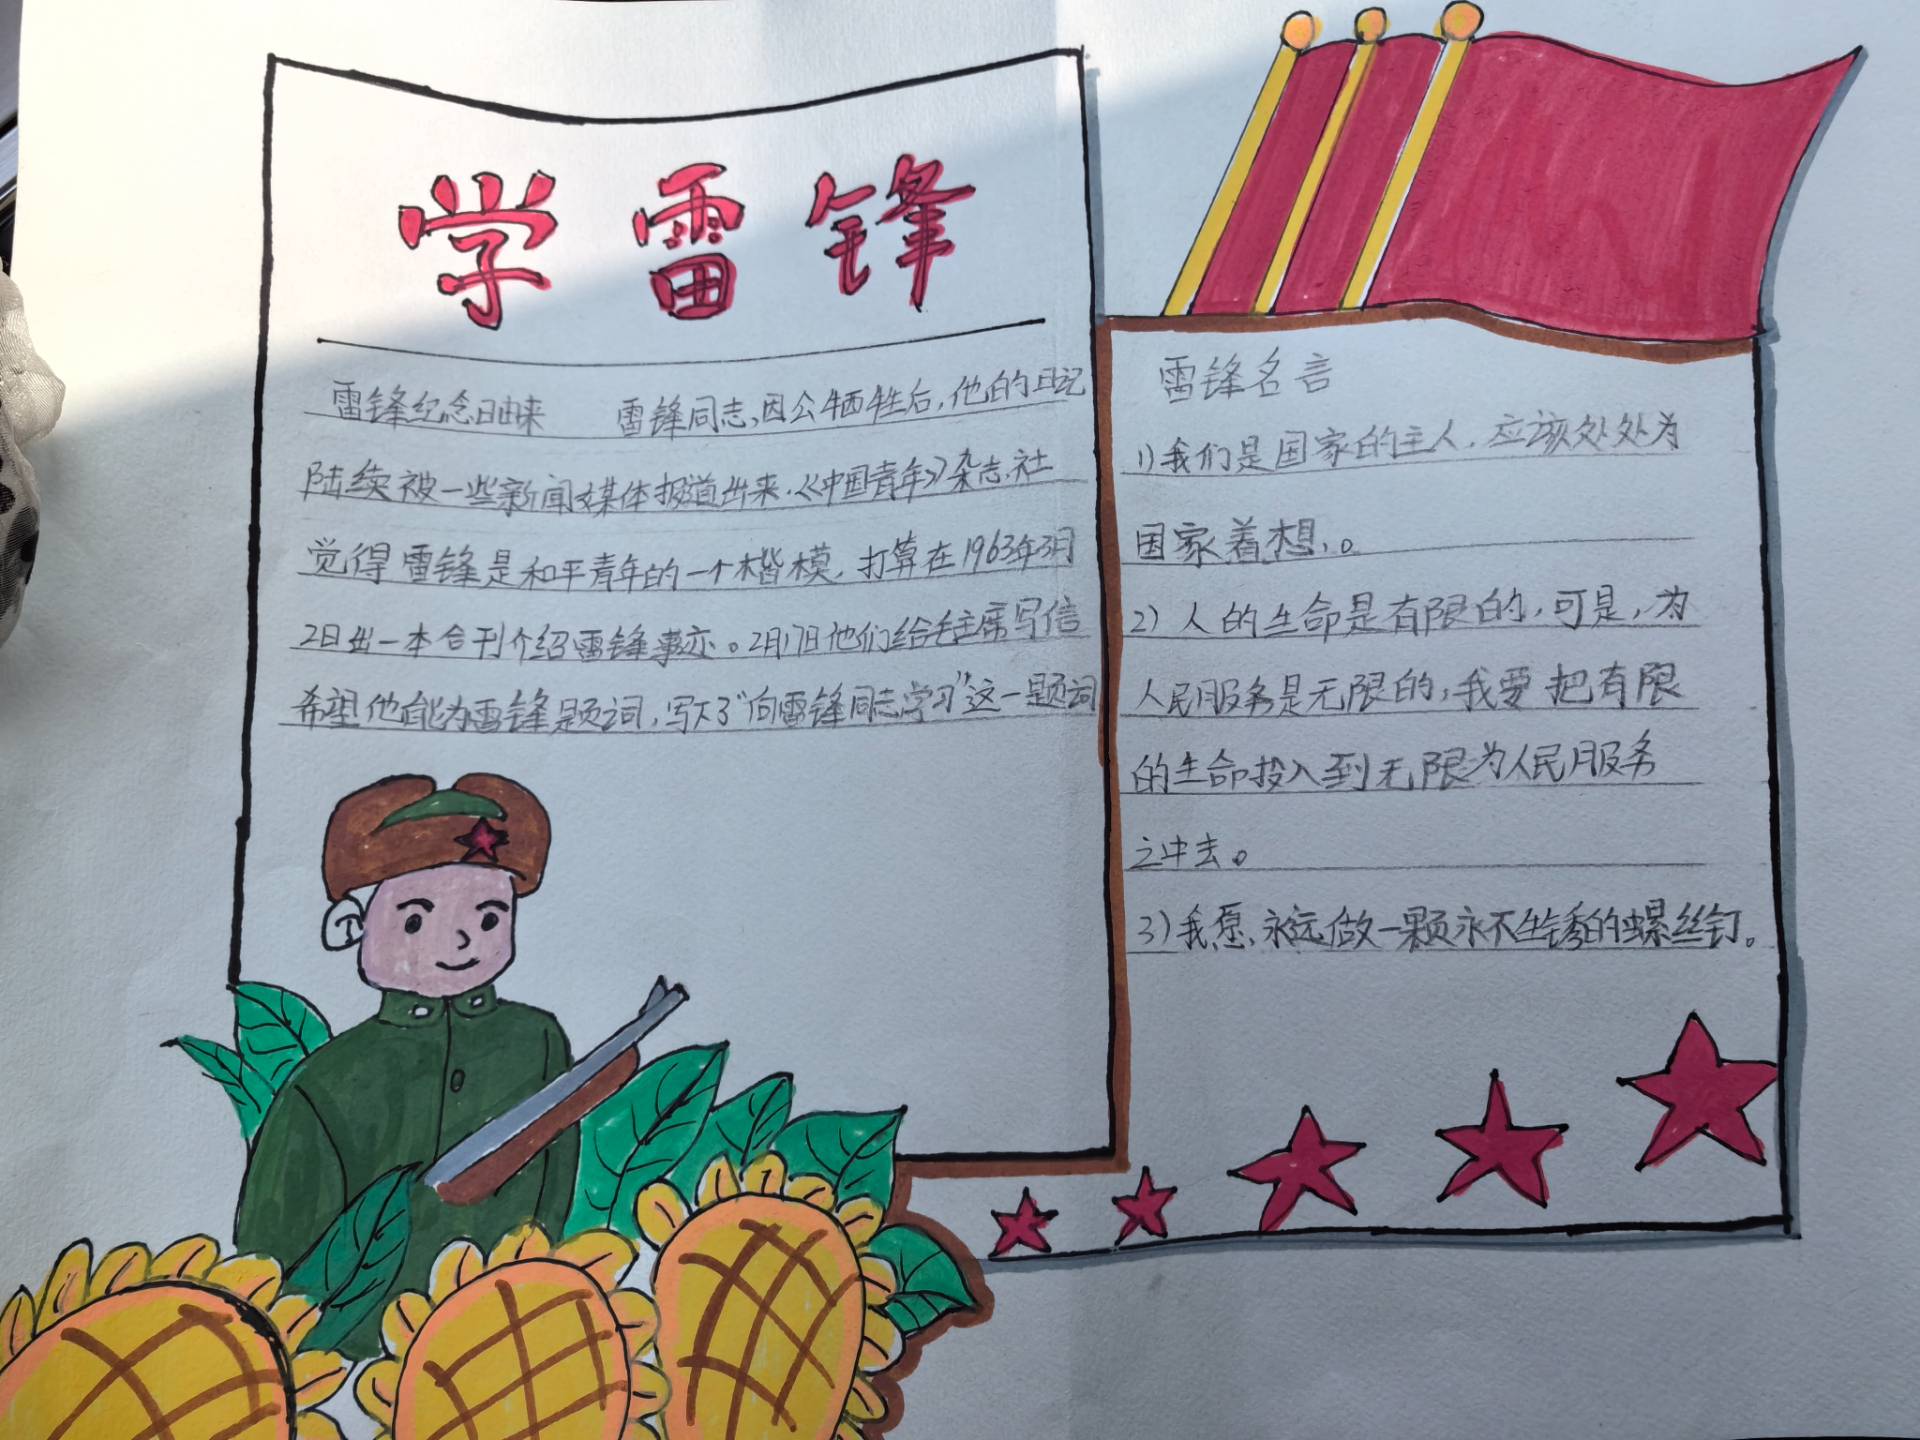 学雷锋
雷锋纪念日由来 雷锋同志,因公牺牲后,他的日记
陆续被一些新闻媒体报道出来.《中国青年》杂志社
觉得雷锋是和平青年的一个楷模,打算在1963年3月
2日出一本合刊介绍雷锋事迹。2月17日他们给毛主席写信
希望他能为雷锋题词,写下了“向雷锋同志学习”这一题词
雷锋名言
1)我们是国家的主人,应该处处为
国家着想,。
2)人的生命是有限的,可是,为
人民服务是无限的,我要把有限
的生命投入到无限为人民服务
之中去。
3)我愿,永远做一颗永不生锈的螺丝钉。